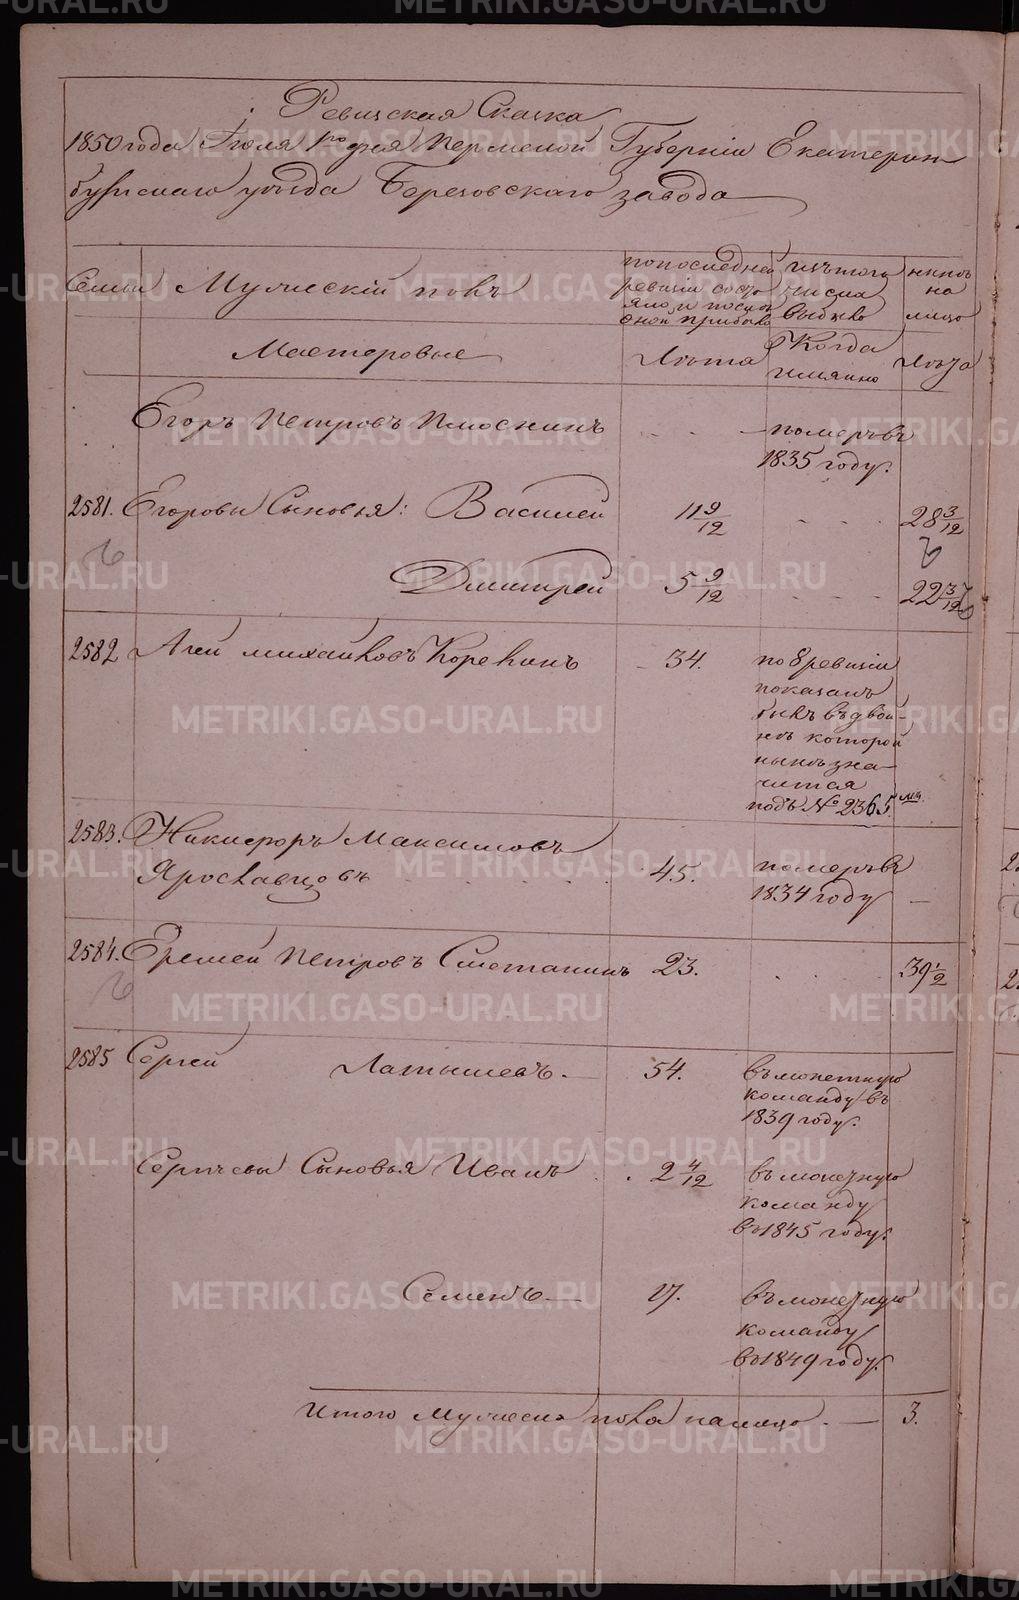 Ревизская Сказка
1850 года Июля 1го дня Пермской Губерніи Екатерин
бургскаго уѣзда Березовскаго завода
Семьи Мужескій полъ
по последней
ревизіи состо
яло и послѣ
оной прибыло
изъ того
числа
выбыло
нынѣ
на
лицо
Мастеровые
Лѣта
Когда
имянно
Лѣта
Егоръ Петровъ Плюснинъ - - - померъ въ
1835 году.
2581. Егоровы Сыновья: Василей 11 9/12 - - - 28 3/12
Дмитрей 5 9/12 - - - 22 3/12
2582 Агей Михайловъ Корекинъ 34. по 8 ревизіи
показанъ
былъ вдвой-
нѣ которой
нынѣ зна-
чится
подъ № 2365.мъ
2583. Никифоръ Максимовъ
Ярославцовъ 45. померъ въ
1834 году —
2584. Еремей Петровъ Сметанинъ 23. 39 1/2
2585 Сергей Латышевъ. — 54. въ монетную
команду въ
1839 году.
Сергѣевы Сыновья Иванъ 2 4/12 въ монетную
команду
въ 1845 году.
Семенъ — 17. въ монетную
команду
въ 1849 году.
Итого Мужеска пола налицо. — 3.
METRIKI.GASO-URAL.RU